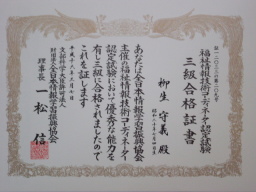 証一二〇三六八第二〇九号
福祉情報技術コーディネーター認定試験
三級合格証書
柳生 守義 殿
あなたは全日本情報学習振興協会
主催の福祉情報技術コーディネーター
認定試験において優秀な能力を
有し三級に合格されましたので
これを証します
平成十六年三月七日
文部科学大臣認可法人
財団法人全日本情報学習振興協会
理事長 一松 信